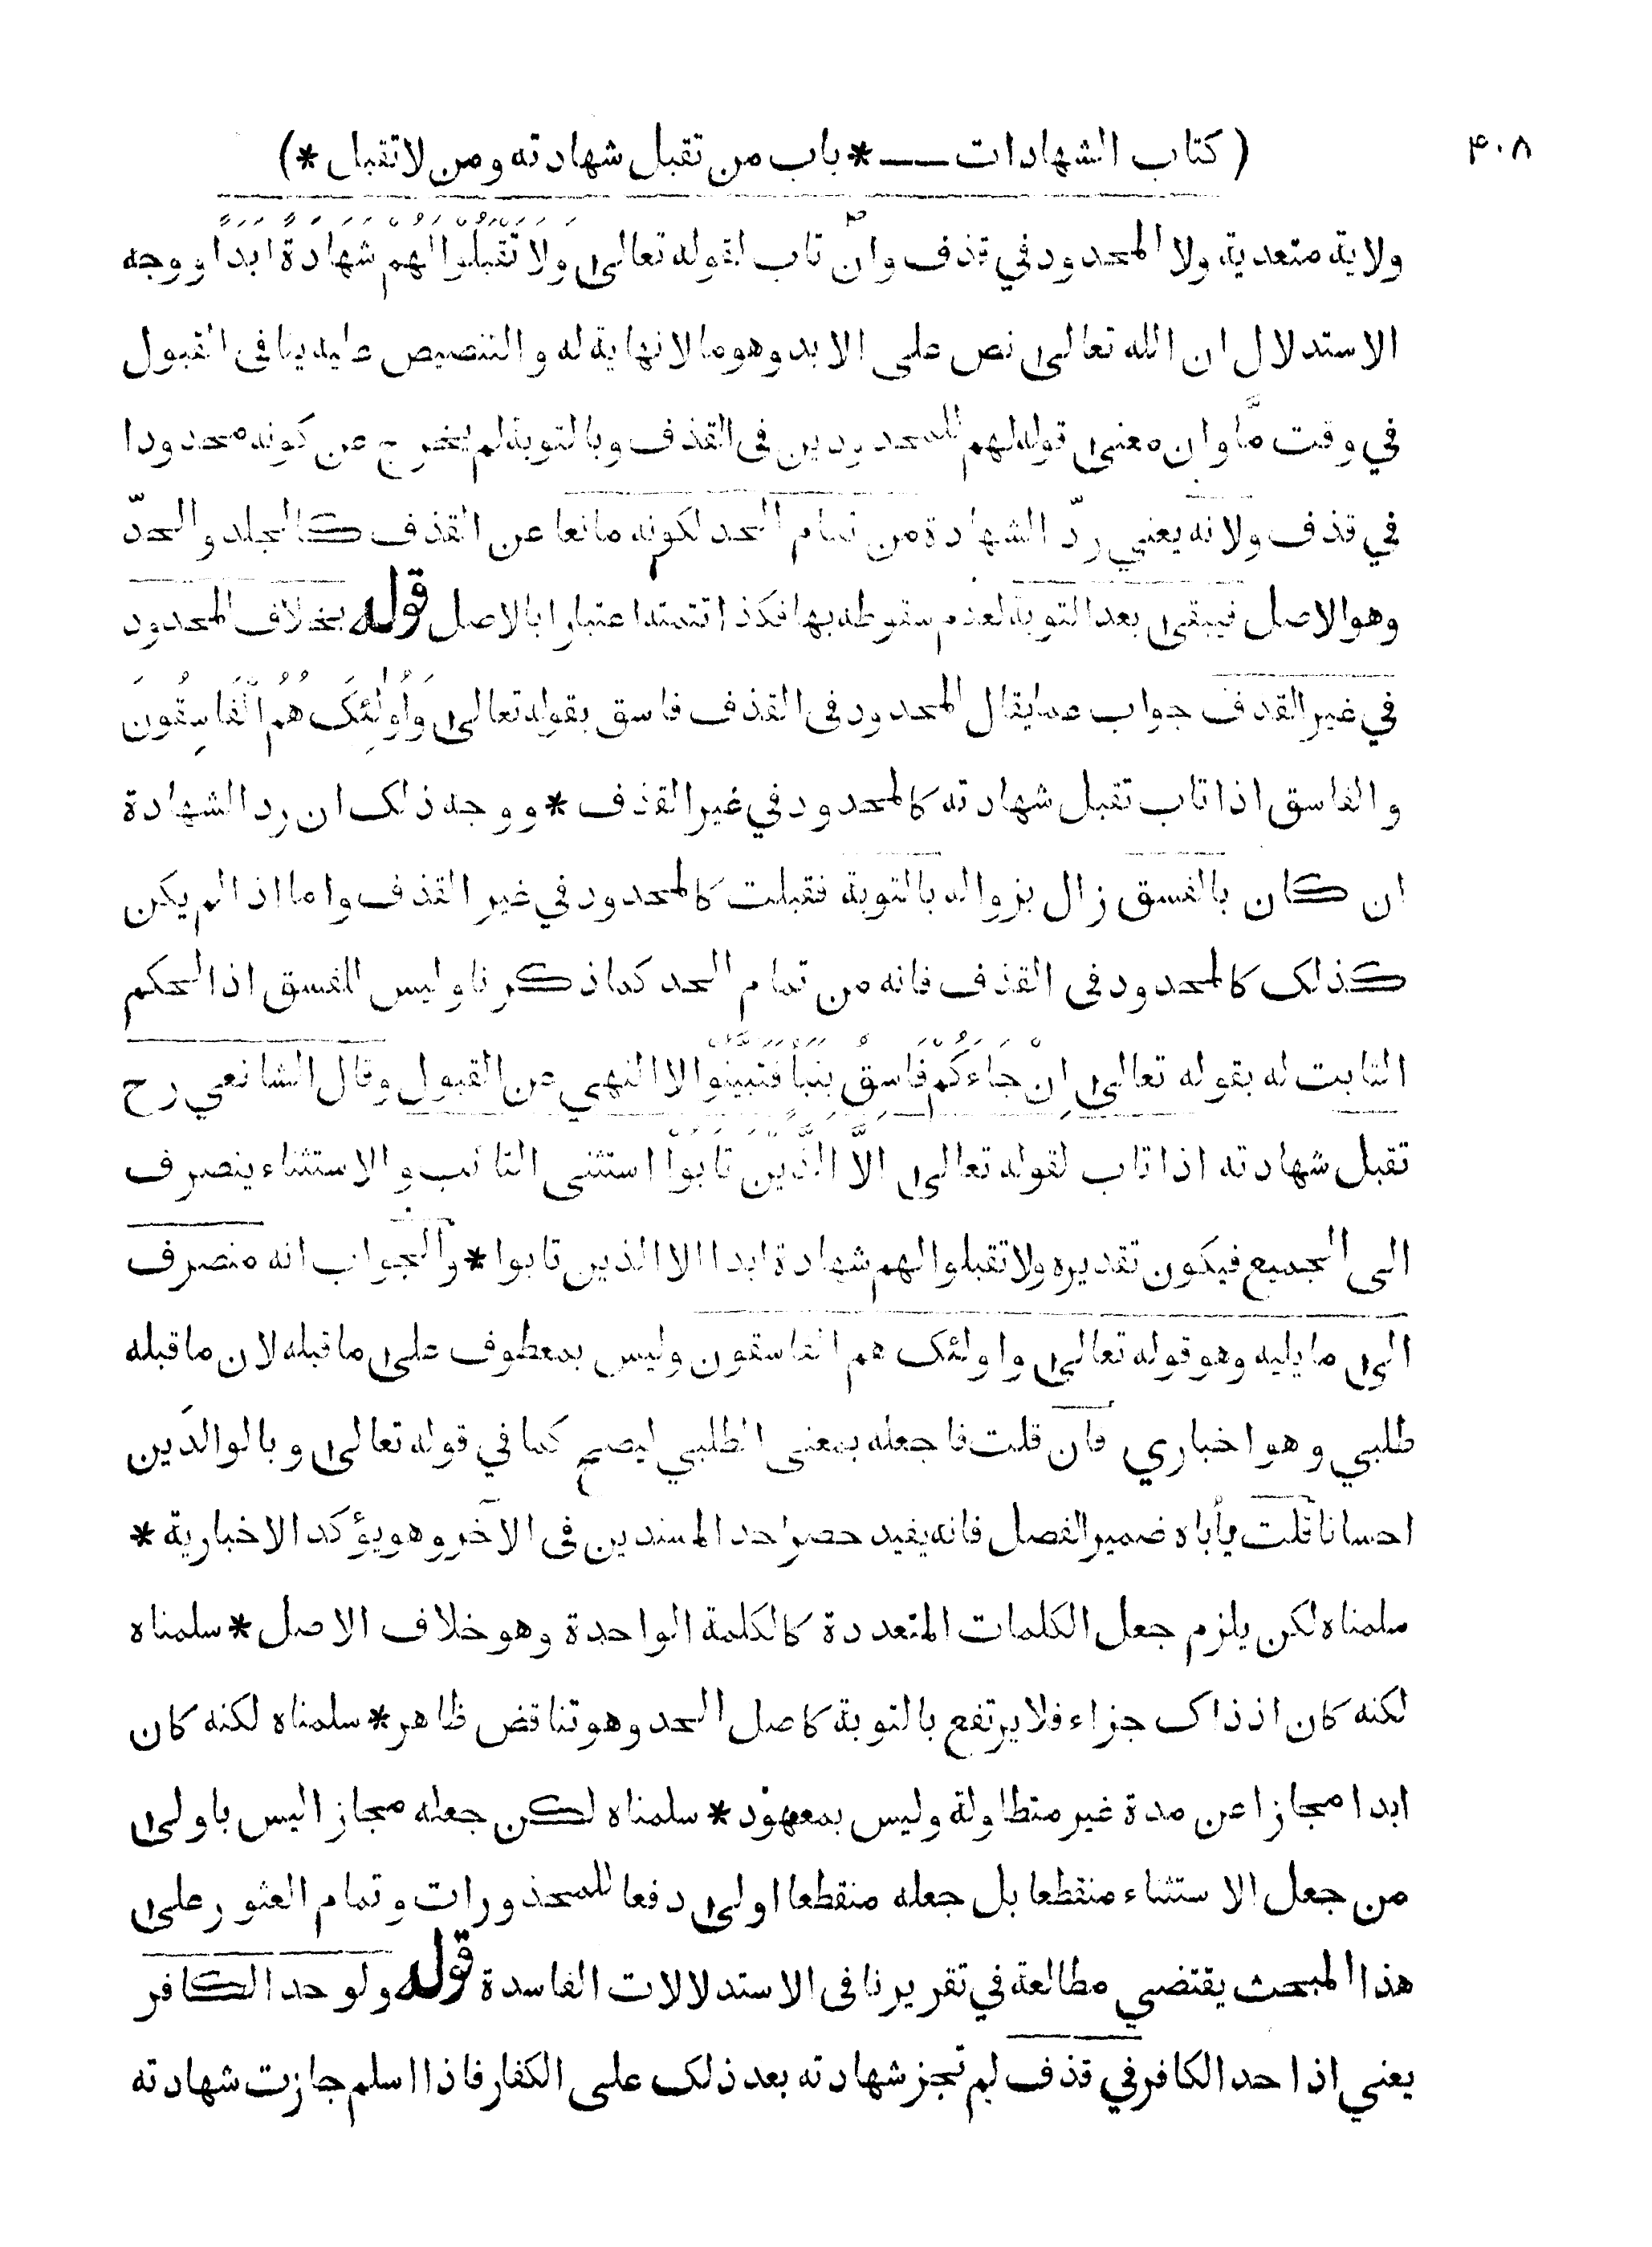 ( كتاب الشهادات —— * باب من تقبل شهادته ومن لا تقبل * ) ۴۰۸
ولاية متعدية ولا المحدود في قذف وان تاب لقوله تعالى وَلَا تَقْبَلُوْا لَهُمْ شَهَادَةً اَبَدًا ووجه
الاستدلال ان الله تعالى نص على الابد وهو ما لا نهاية له والتنصيص عليه ينافى القبول
في وقت مّا وان معنى قوله لهم للمحدودين فى القذف وبالتوبة لم يخرج عن كونه محدودا
في قذف ولانه يعني ردّ الشهادة من تمام الحد لكونه مانعا عن القذف كالجلد والحدّ
وهو الاصل فيبقى بعد التوبة لعدم سقوطه بها فكذا تتمته اعتبارا بالاصل قوله بخلاف المحدود
في غير القذف جواب عما يقال المحدود فى القذف فاسق بقوله تعالى وَاُولٰئِكَ هُمُ الْفَاسِقُونَ
والفاسق اذا تاب تقبل شهادته كالمحدود في غير القذف * ووجه ذلك ان رد الشهادة
ان كان بالفسق زال بزواله بالتوبة فقبلت كالمحدود في غير القذف واما اذا لم يكن
كذلك كالمحدود فى القذف فانه من تمام الحد كما ذكرنا وليس للفسق اذ الحكم
الثابت له بقوله تعالى اِنْ جَاءَكُمْ فَاسِقٌ بِنَبَأٍ فَتَبَيَّنُوْا الا النهي عن القبول وقال الشافعي رح
تقبل شهادته اذا تاب لقوله تعالى اِلَّا الَّذِيْنَ تَابُوْا استثنى التائب والاستثناء ينصرف
الى الجميع فيكون تقديره ولا تقبلوا لهم شهادة ابدا الا الذين تابوا * والجواب انه منصرف
الى ما يليه وهو قوله تعالى واولئك هم الفاسقون وليس بمعطوف على ما قبله لان ما قبله
طلبي وهو اخباري فان قلت فاجعله بمعنى الطلبي ليصح كما في قوله تعالى وبالوالدَين
احسانا قلت يأباه ضمير الفصل فانه يفيد حصر احد المسندين فى الآخر وهو يؤكد الاخبارية *
سلمناه لكن يلزم جعل الكلمات المتعددة كالكلمة الواحدة وهو خلاف الاصل * سلمناه
لكنه كان اذ ذاك جزاء فلا يرتفع بالتوبة كاصل الحد وهو تناقض ظاهر * سلمناه لكنه كان
ابدا مجازا عن مدة غير متطاولة وليس بمعهود * سلمناه لكن جعله مجازا ليس باولى
من جعل الاستثناء منقطعا بل جعله منقطعا اولى دفعا للمحذورات وتمام العثور على
هذا المبحث يقتضي مطالعة في تقريرنا فى الاستدلالات الفاسدة قوله ولو حد الكافر
يعني اذا حد الكافر في قذف لم تجز شهادته بعد ذلك على الكفار فاذا اسلم جازت شهادته